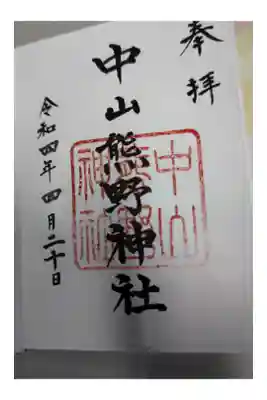 奉拝
中山熊野神社
令和四年四月二十日
中山熊野神社